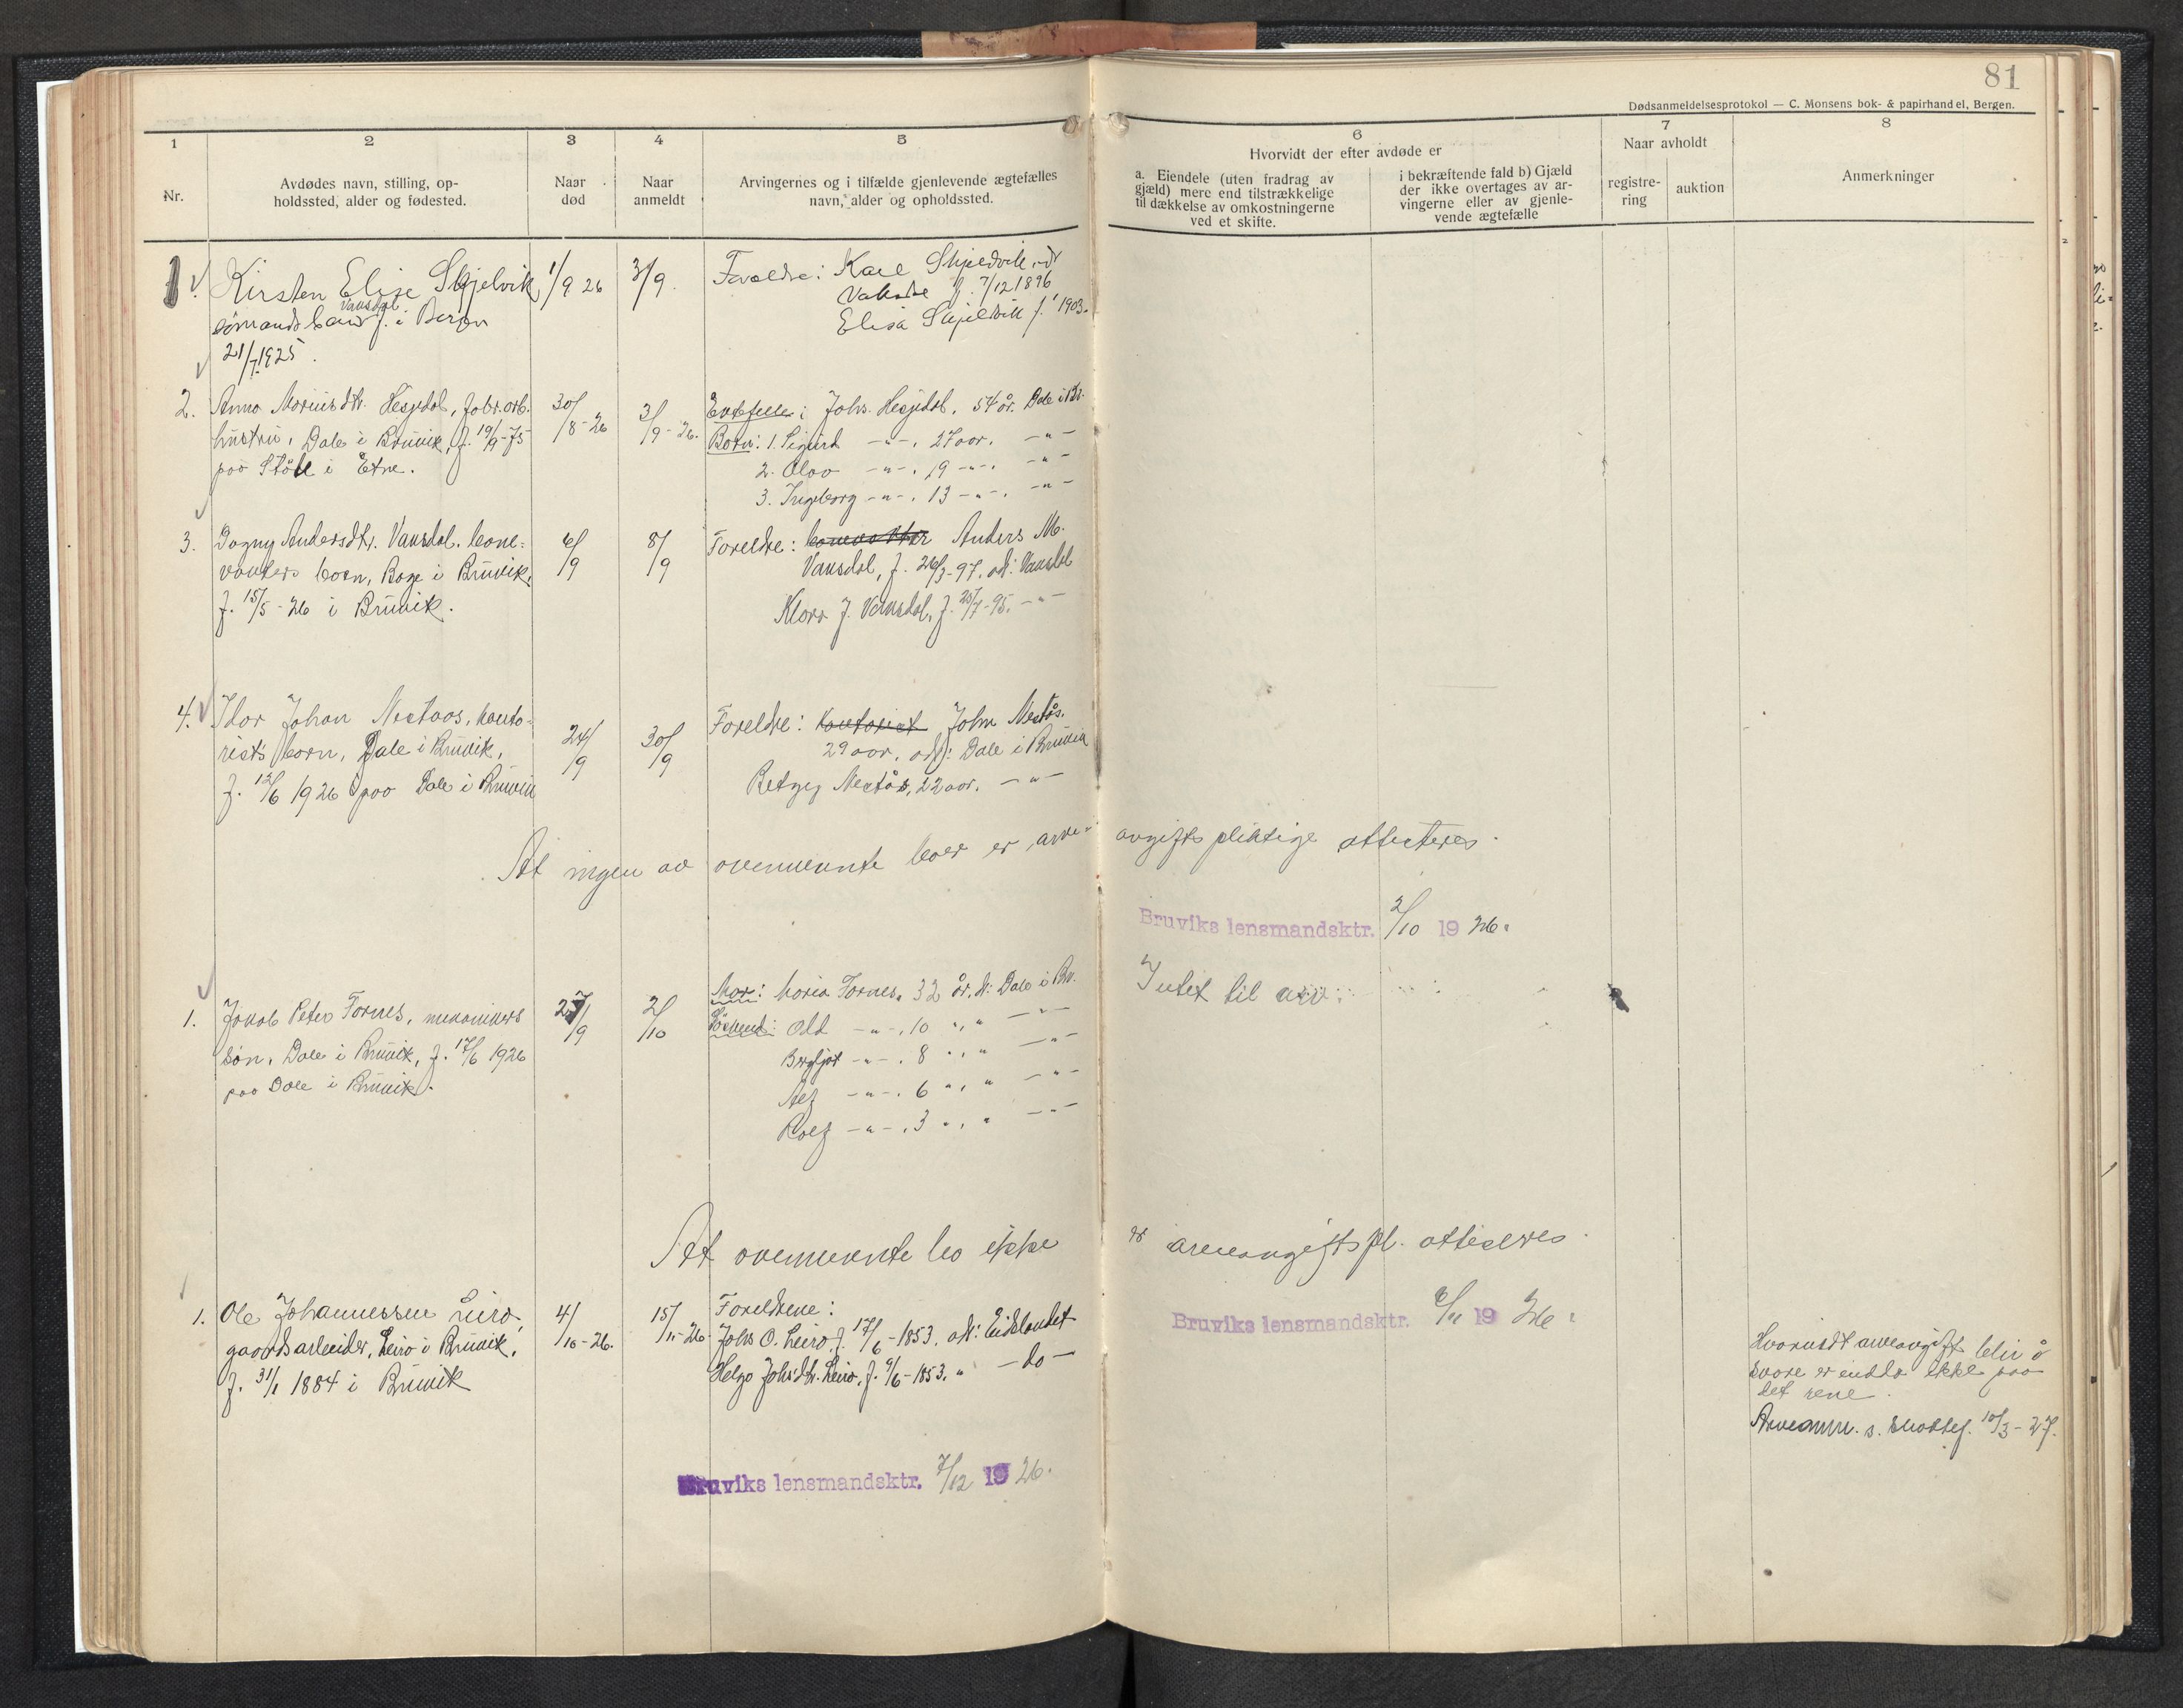 81
Dødsanmeldelsesprotokol — C. Monsens bok- & papirhandel, Bergen.
1
2
3
4
5
6
7
8
Nr.
Avdødes navn, stilling, op-
holdssted, alder og fødested.
Naar
død
Naar
anmeldt
Arvingernes og i tilfælde gjenlevende ægtefælles
navn, alder og opholdssted.
Hvorvidt der efter avdøde er
a. Eiendele (uten fradrag av
gjæld) mere end tilstrækkelige
til dækkelse av omkostningerne
ved et skifte.
i bekræftende fald b) Gjæld
der ikke overtages av ar-
vingerne eller av gjenle-
vende ægtefælle
Naar avholdt
registre-
ring
auktion
Anmerkninger
1. Kirsten Elise Skjelvik
Vansdal
sømands barn f. i Bergen
21/7 1925.
1/9 26
3/9.
Foreldre: Karl Skjeldvik
f. 7/12 1896
Elisa Skjeldvik f. 1903.
2. Anna Mariusdtr. Hesjedal, fabr.arb.
hustru, Dale i Bruvik, f. 19/9-75
paa Støle i Etne.
30/8-26
3/9-26.
Ektefelle: Johs. Hesjedal, 54 år. Dale i Br.
Born: 1. Sigurd -"-, 27 aar. -"-
2. Olav -"-, 19 -"-, -"-
3. Ingeborg -"-, 13 -"-, -"-
3. Dagny Andersdtr. Vansdal, bane-
vokters barn, Boge i Bruvik,
f. 15/5-26 i Bruvik.
6/9
8/9
Foreldre: banevokter Anders M.
Vansdal, f. 26/3-97. adr: Vansdal
Klara J. Vansdal, f. 20/7-95. -"-
4. Idar Johan Nestaas, konto-
rists barn, Dale i Bruvik,
f. 12/6 1926 paa Dale i Bruvik
24/9
30/9
Foreldre: kontorist John Nestås.
29 aar, adr: Dale i Bruvik
Betzy Nestås, 22 aar. -"-
At ingen av ovennevnte boer er arve-
avgifts pliktige attesteres.
Bruviks lensmandsktr. 2/10 1926.
1. Jakob Peter Fornes, mekanikers
søn, Dale i Bruvik, f. 17/6 1926
paa Dale i Bruvik.
27/9
2/10
Mor: Maria Fornes, 32 år, Dale i Br.
Søskend: Odd -"-, 10 ", " -"-
Bergljot -"-, 8 ", " -"-
Alf -"-, 6 ", " -"-
Rolf -"-, 3 ", " -"-
Intet til arv.
At ovennevnte bo ikke
er arveavgiftspl. attesteres.
Bruviks lensmandsktr. 1926.
1. Ole Johannessen Leiro,
gaardsarbeider, Leiro i Bruvik,
f. 31/1 1884 i Bruvik
4/10-26.
15/11-26.
Foreldrene:
Johs O. Leiro, f. 17/6-1853. adr: Eidslandet
Helga Johsdtr. Leiro, f. 9/6-1853. " -do-
Hvorvidt arveavgift blir å
svare er endda ikke paa
det rene.
10/3-27.
Bruviks lensmandsktr. 7/12 1926.